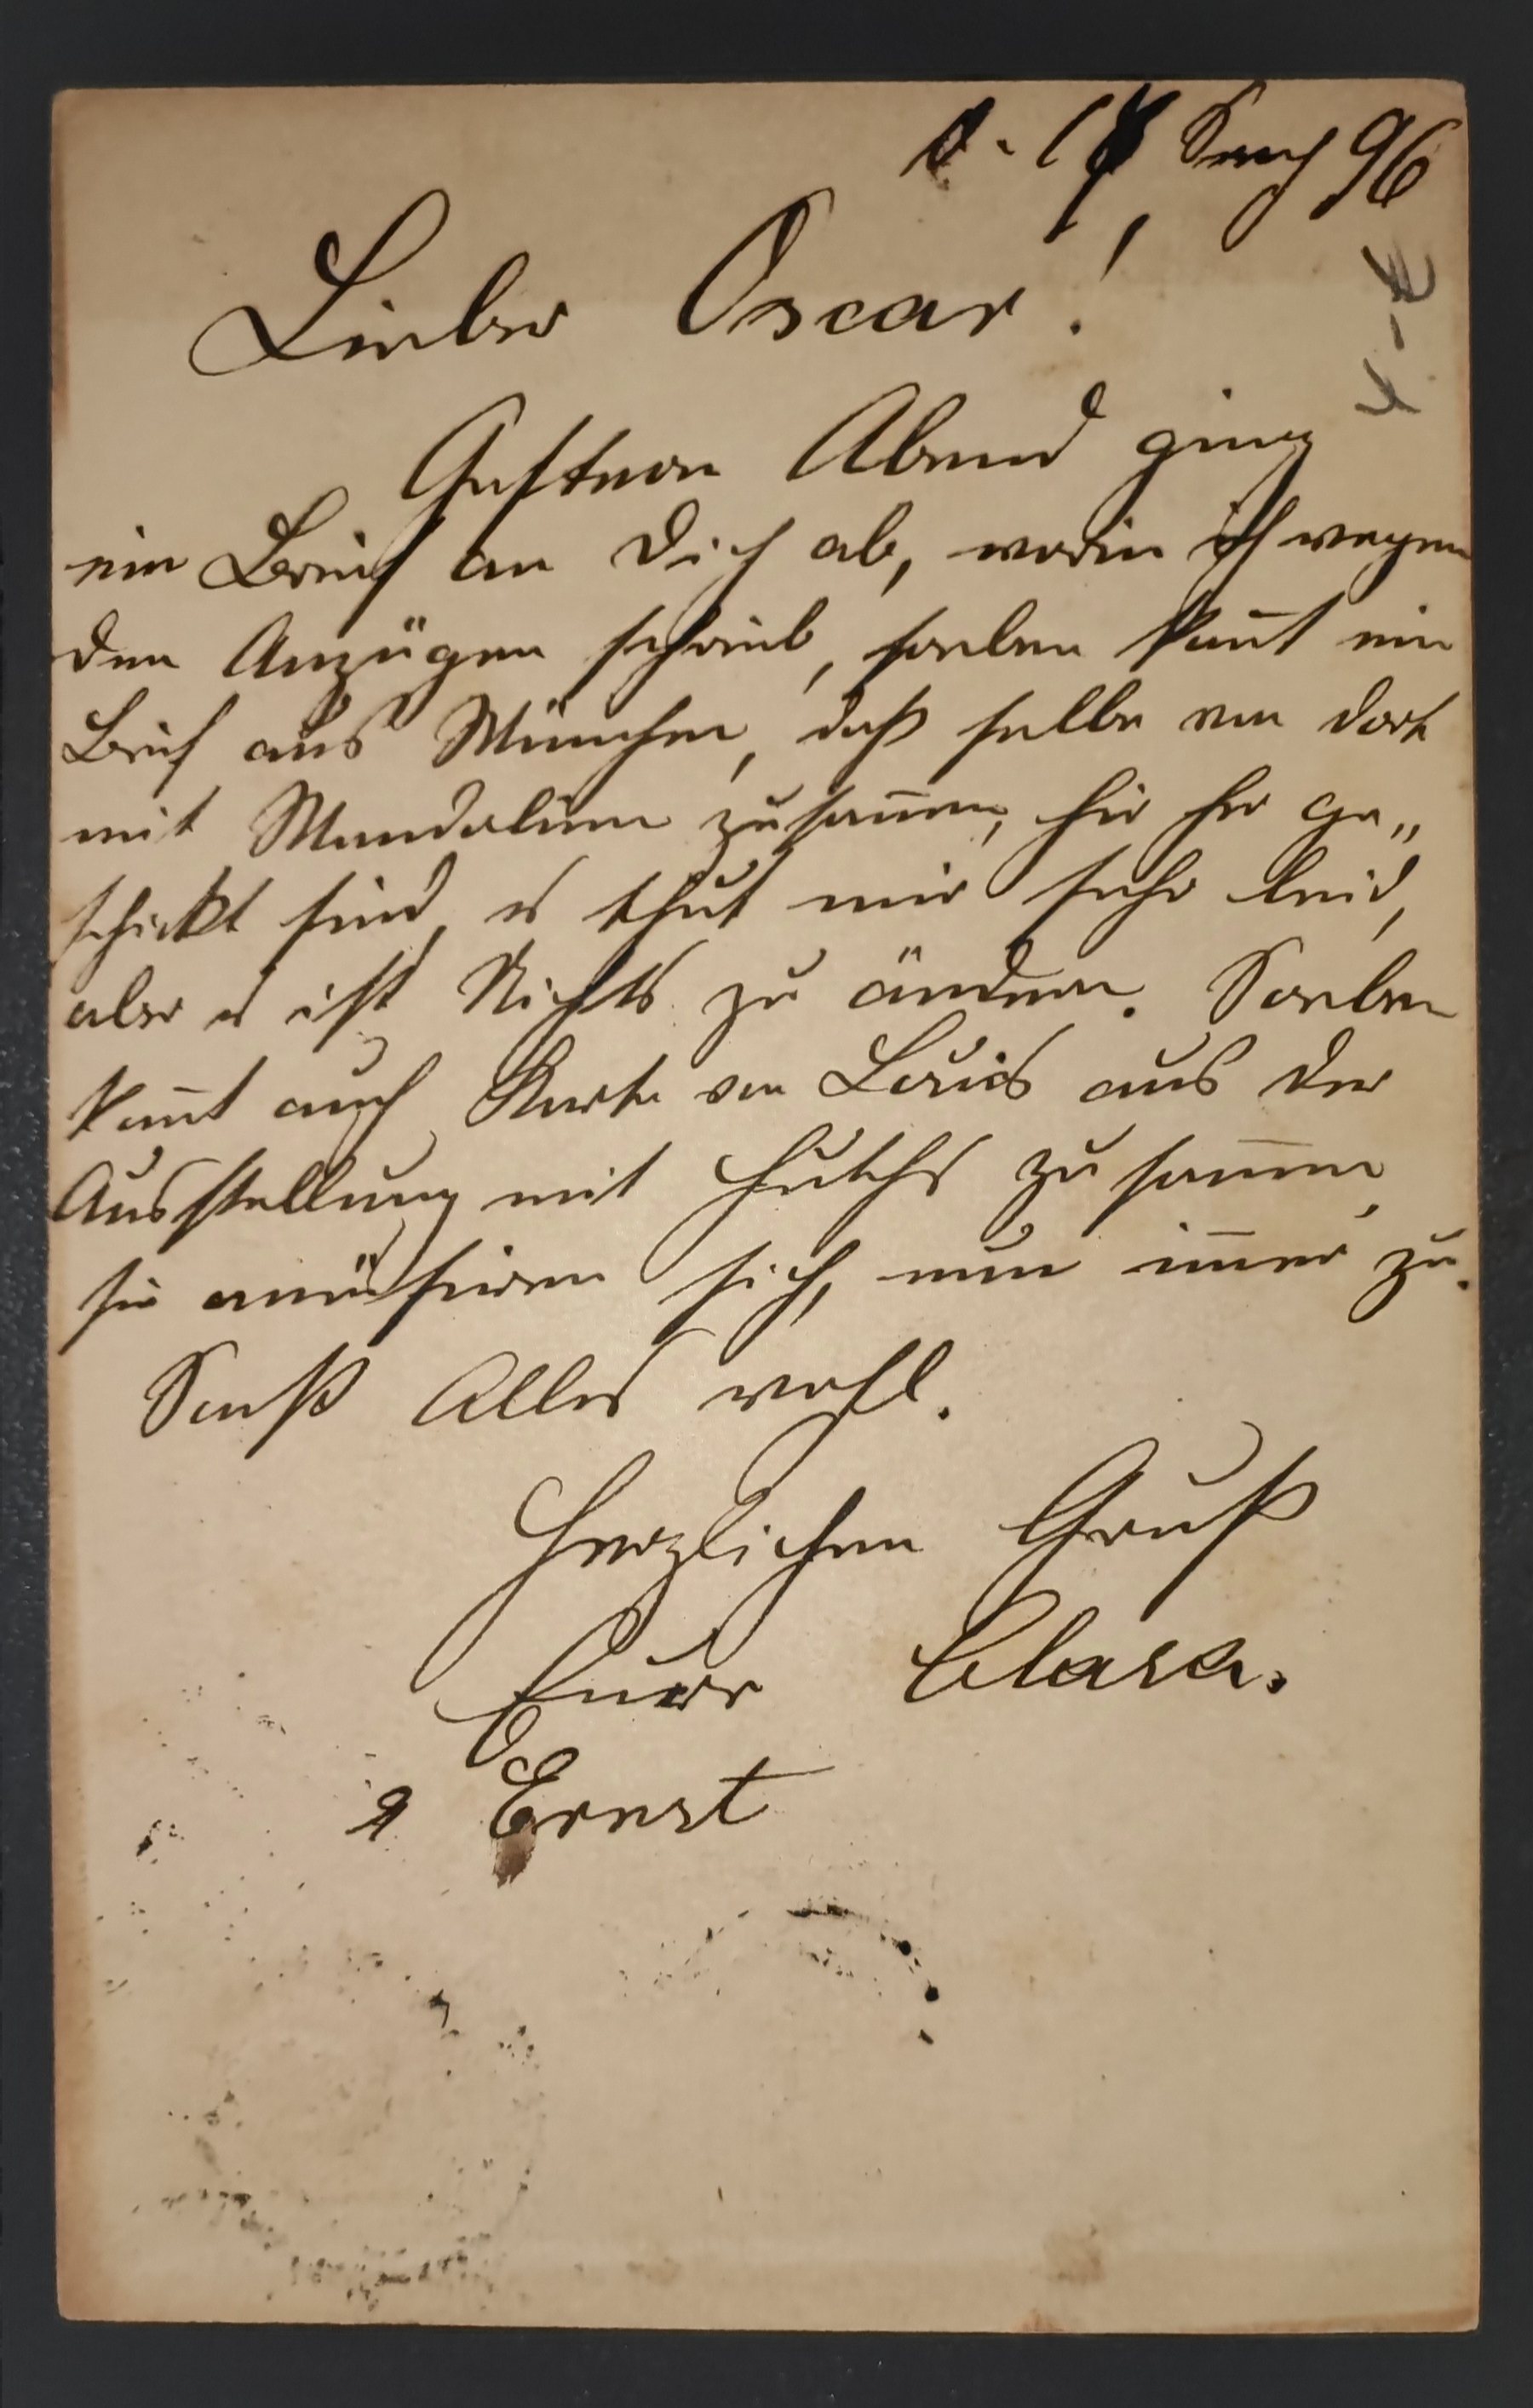 d. 17 Sept 96
Lieber Oscar!
Gestern Abend ging
ein Brief an Dich ab, worin ich wegen
den Anzügen schrieb, soeben kom̅t ein
Brief aus München, daß selbe von dort
mit Mandoline zusam̅en, hier her ge„
schickt sind, es thut mir sehr leid,
aber es ist Nichts zu ändern. Soeben
kom̅t auch Karte von Louis aus der
Ausstellung mit zusam̅en,
sie amüsiren sich, nun im̅er zu.
Sonst Alles wohl.
Herzlichen Gruß
Euer Clara.
& Ernst